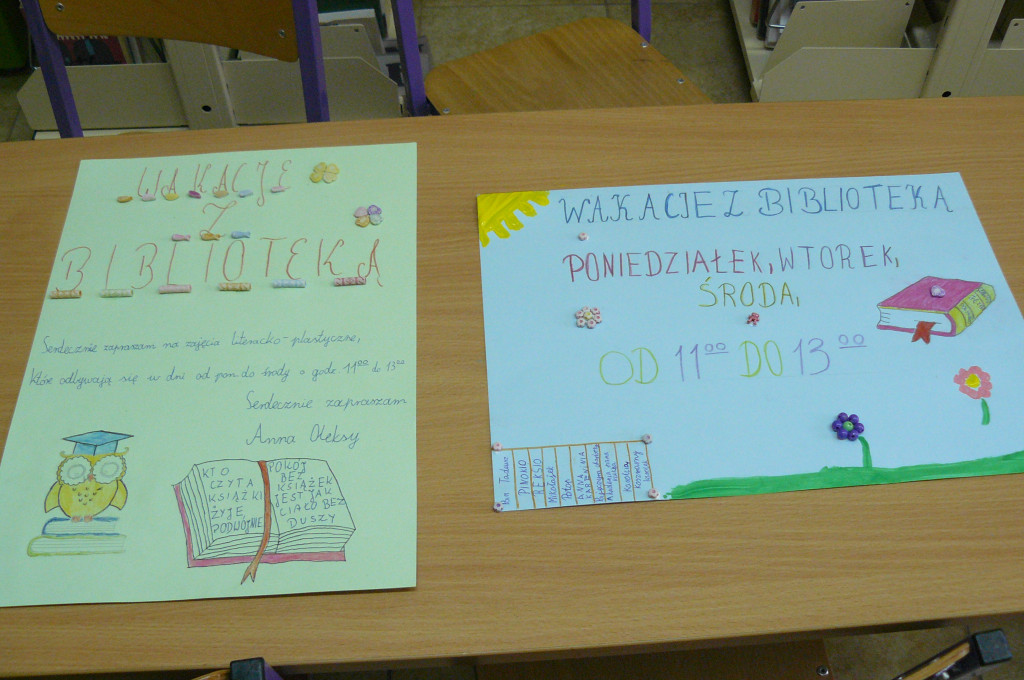 WAKACJE
Z
BIBLIOTEKĄ
Serdecznie zapraszam na zajęcia literacko-plastyczne,
które odbywają się w dni od pon. do środy o godz. 11⁰⁰ do 13⁰⁰
Serdecznie zapraszam
Anna Oleksy
KTO
CZYTA
KSIĄŻKI
ŻYJE
PODWÓJNIE
POKÓJ
BEZ
KSIĄŻEK
JEST JAK
CIAŁO BEZ
DUSZY
WAKACJE Z BIBLIOTEKĄ
PONIEDZIAŁEK, WTOREK,
ŚRODA,
OD 11⁰⁰ DO 13⁰⁰
Pan Tadeusz
PINOKIO
REKSIO
Mikołajek
Potop
ANNA
KARENINA
Akademia pana
Karolcia